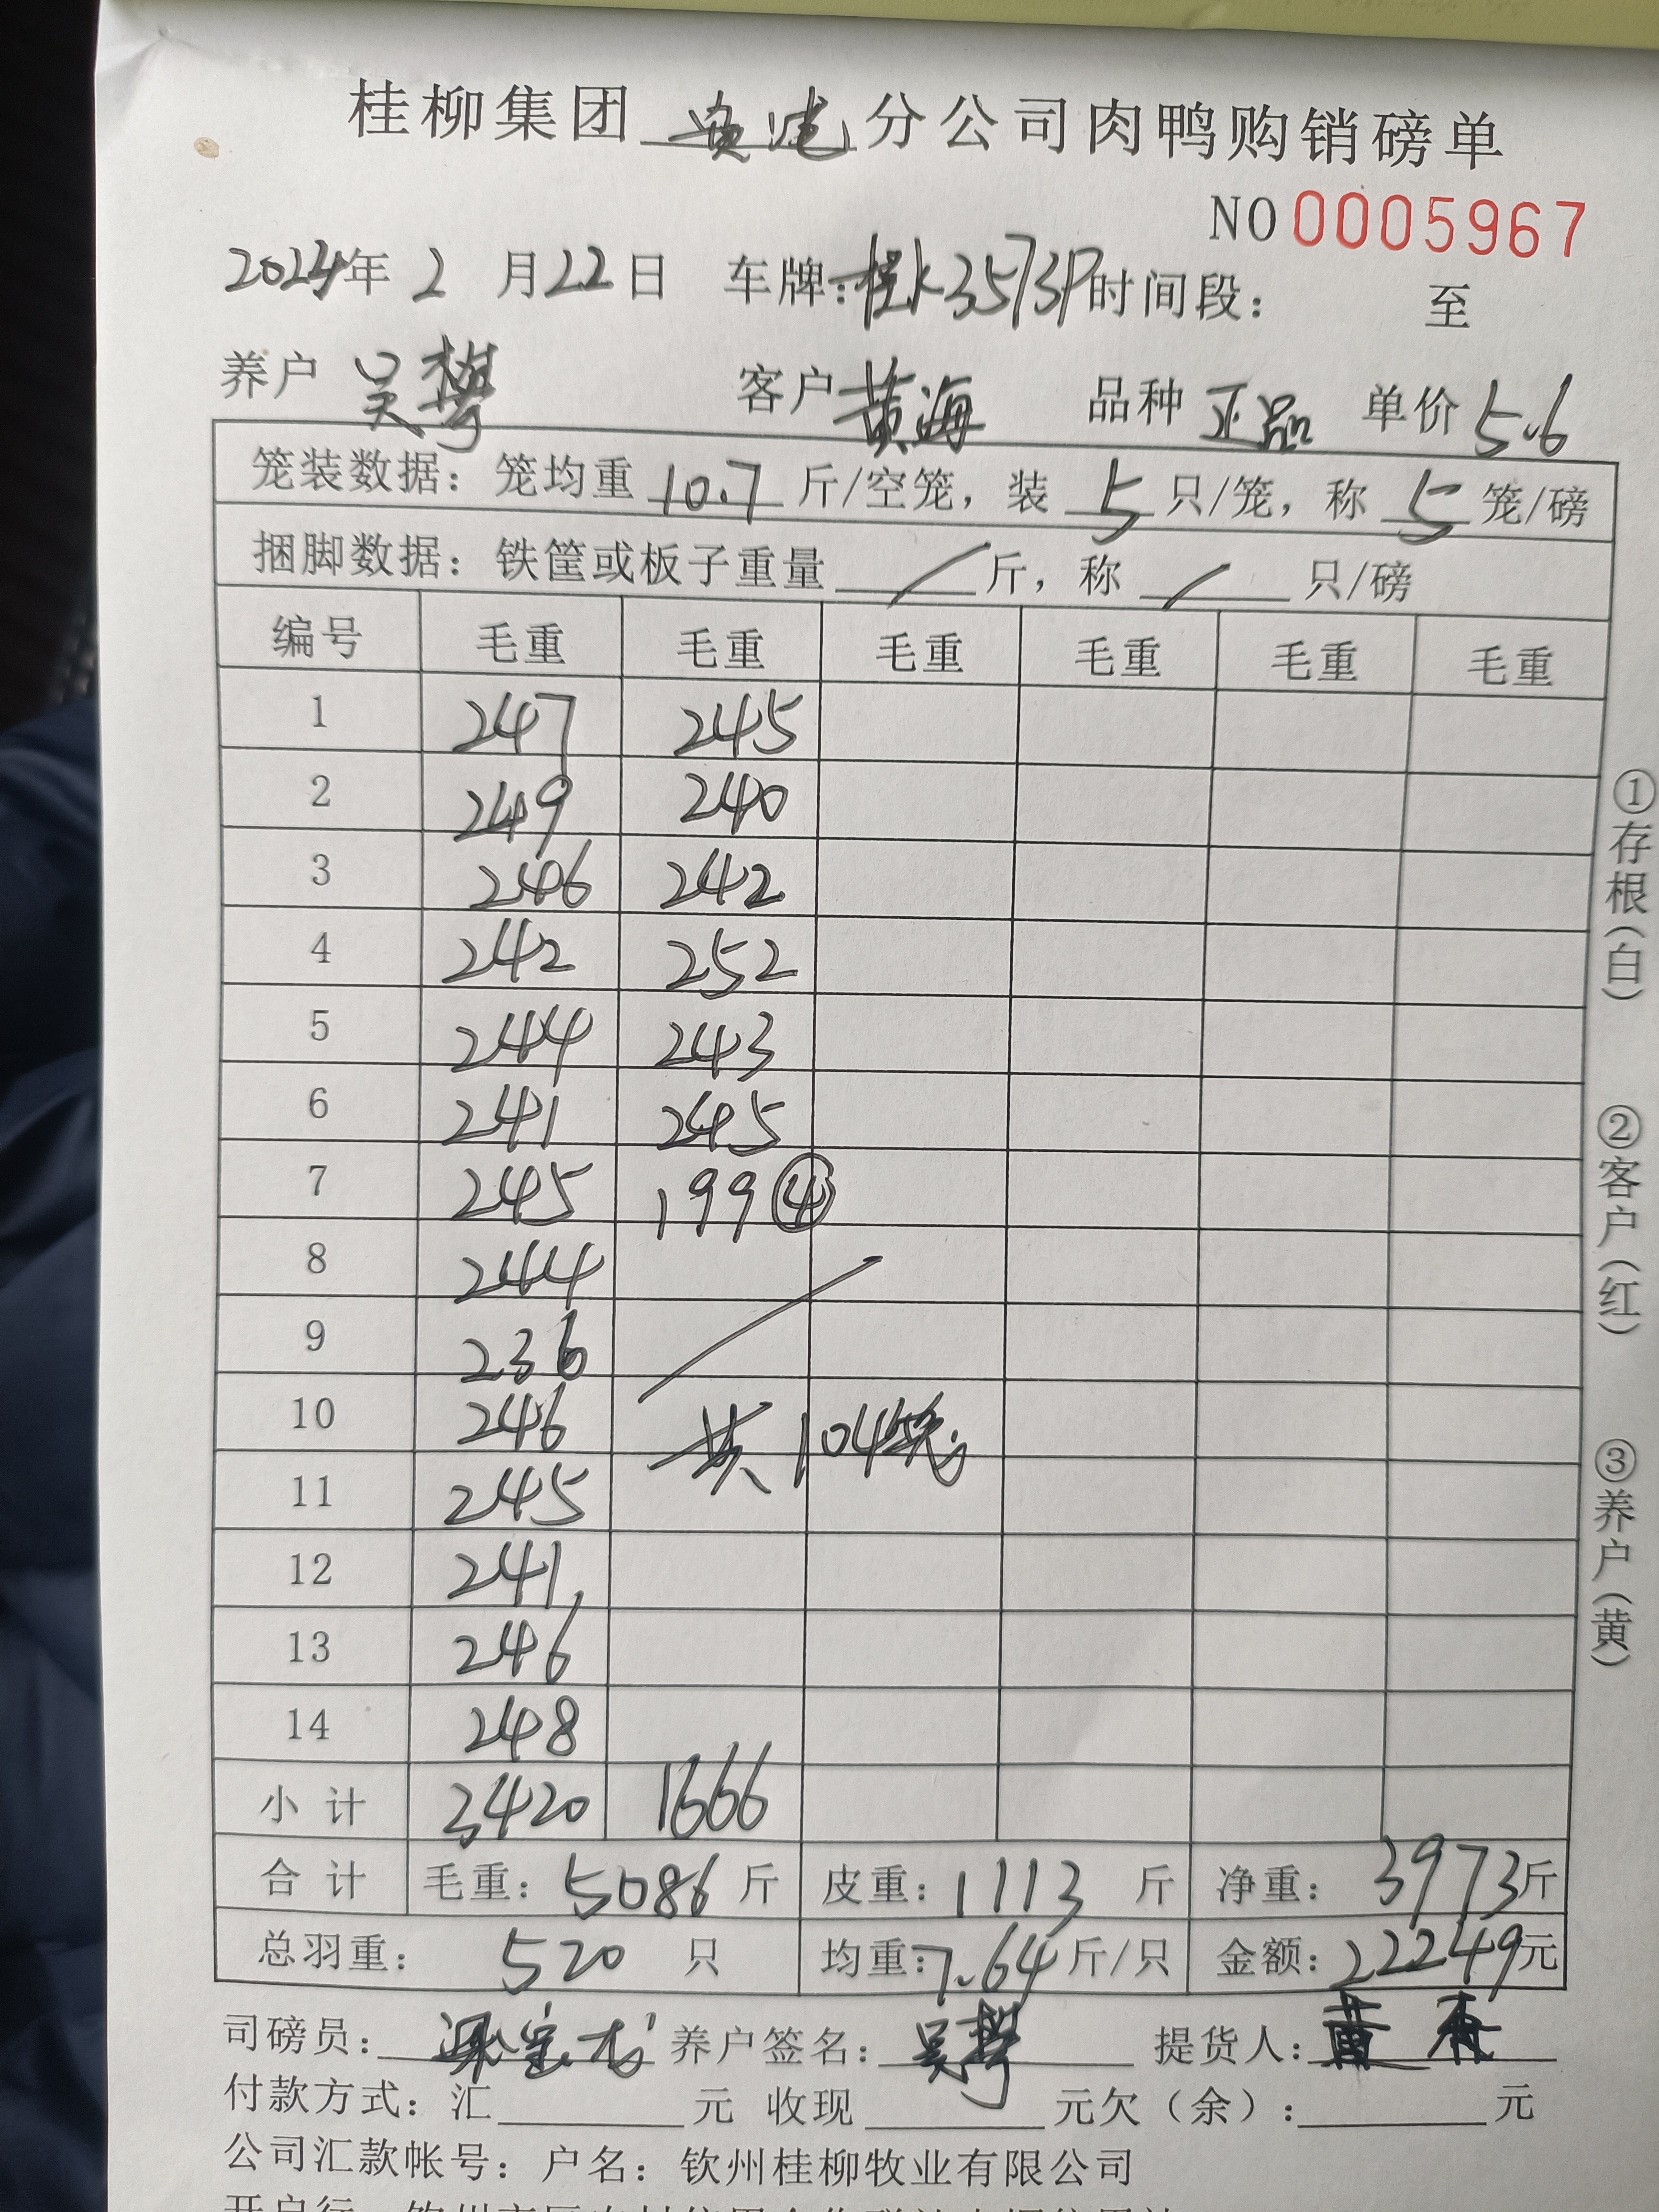 桂柳集团 贵港 分公司肉鸭购销磅单
NO 0005967
2024年 2 月 22 日 车牌：桂K3573P 时间段： 至
养户 吴攀 客户 黄海 品种 正品 单价 5.6
笼装数据：笼均重 10.7 斤/空笼，装 5 只/笼，称 5 笼/磅
捆脚数据：铁筐或板子重量 / 斤，称 / 只/磅
编号 毛重 毛重 毛重 毛重 毛重 毛重
1 247 245
2 249 240
3 246 242
4 242 252
5 244 243
6 241 245
7 245 199 ④
8 244
9 236
10 246 共104笼
11 245
12 241
13 246
14 248
小 计 3420 1666
合 计 毛重：5086 斤 皮重：1113 斤 净重：3973 斤
总羽重： 520 只 均重：7.64 斤/只 金额：22249 元
司磅员： 养户签名：吴攀 提货人：黄
付款方式：汇 元 收现 元欠（余）： 元
公司汇款帐号：户名：钦州桂柳牧业有限公司
①存根（白） ②客户（红） ③养户（黄）